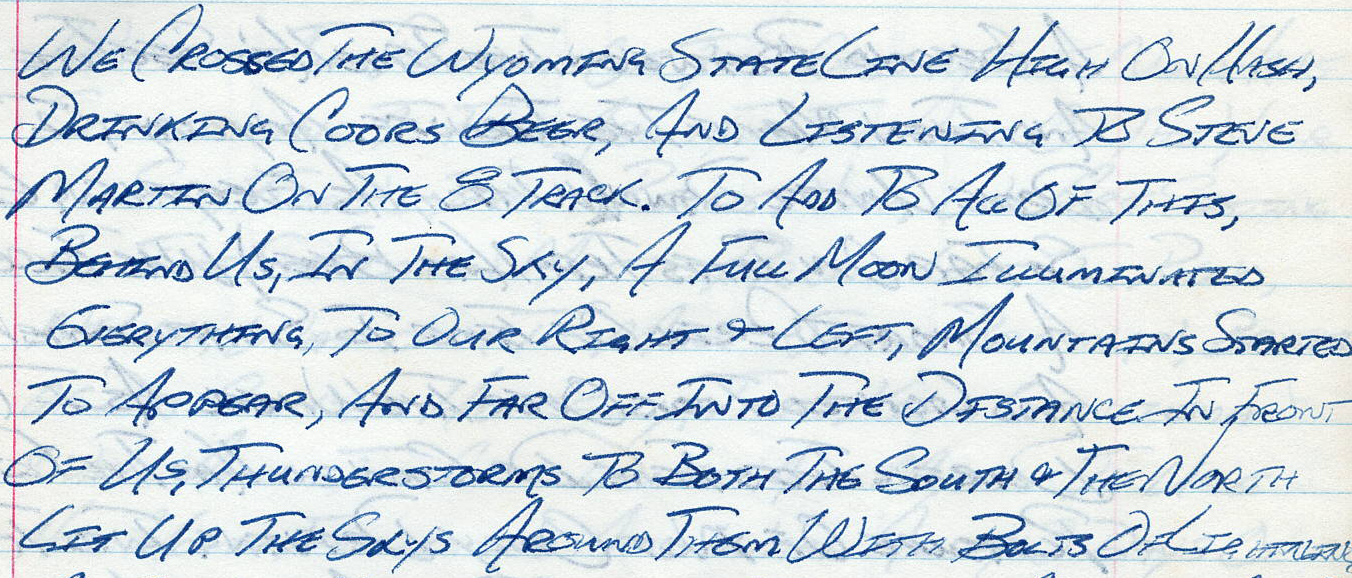 We Crossed The Wyoming State Line High On Hash,
Drinking Coors Beer, And Listening To Steve
Martin On The 8 Track. To Add To All Of This,
Behind Us, In The Sky, A Full Moon Illuminated
Everything, To Our Right & Left, Mountains Started
To Appear, And Far Off Into The Distance In Front
Of Us, Thunderstorms To Both The South & The North
Lit Up The Skys Around Them With Bolts Of Lightning